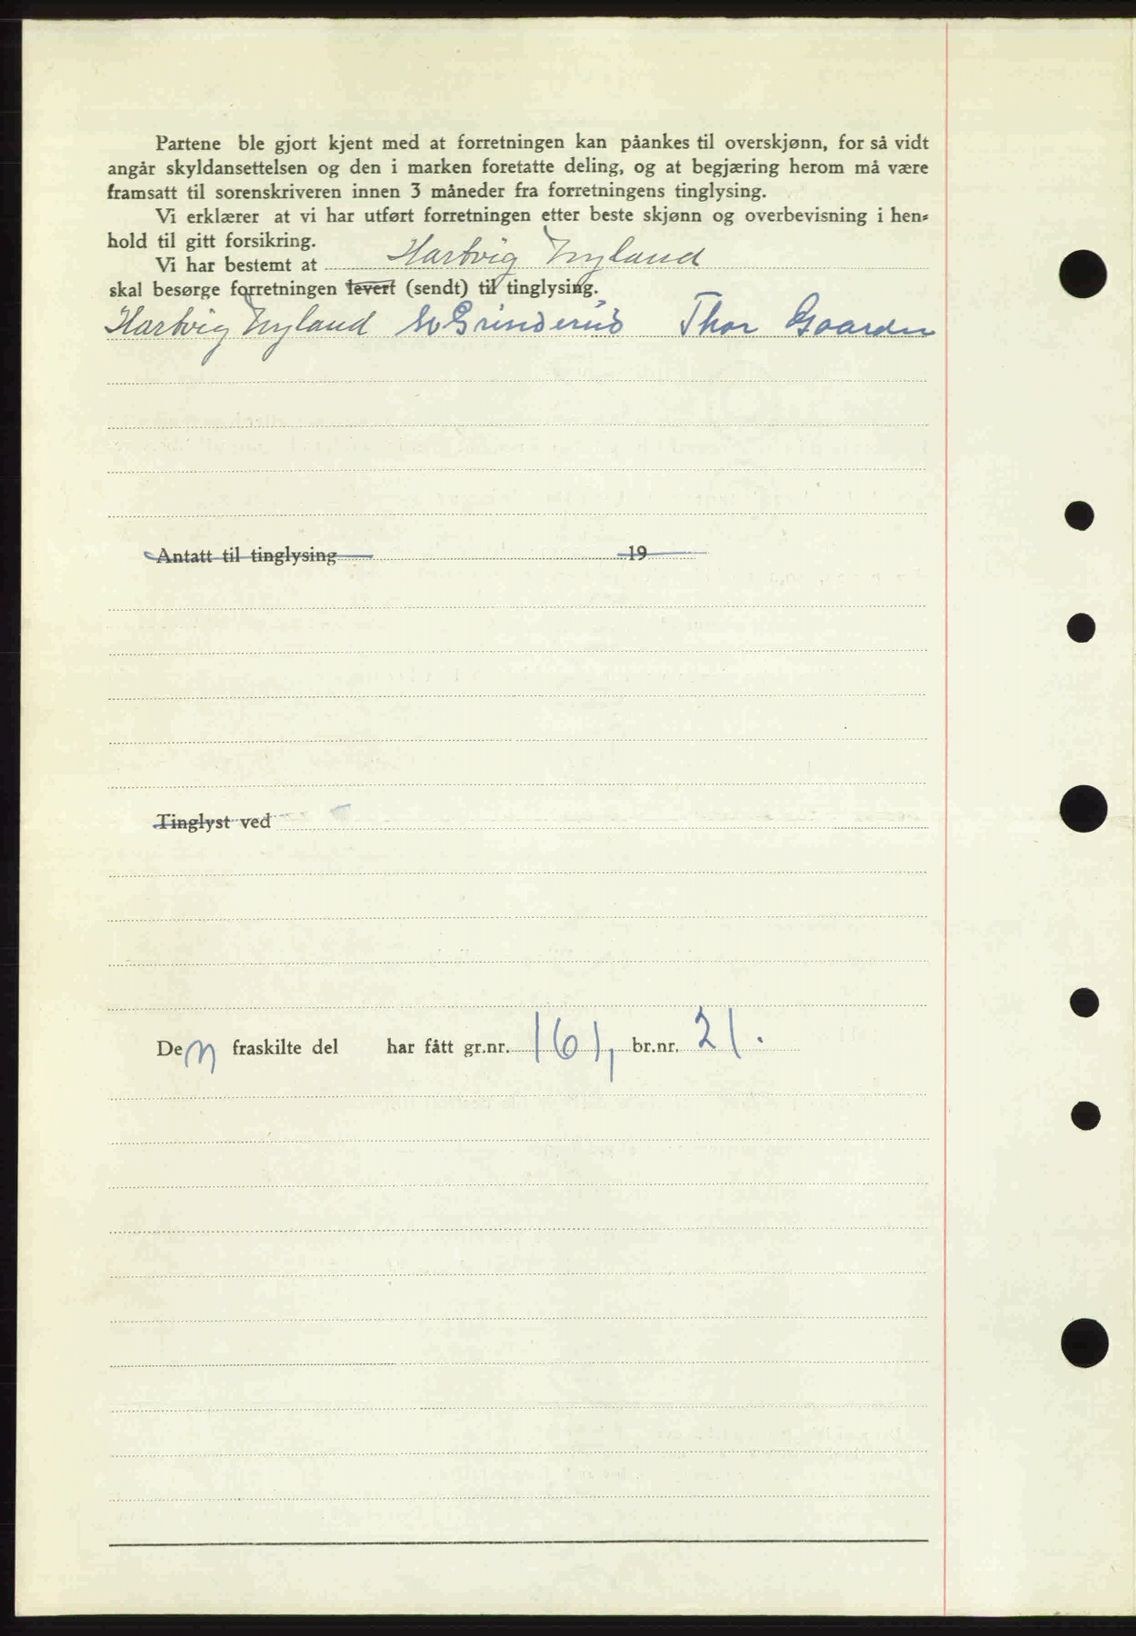 Partene ble gjort kjent med at forretningen kan påankes til overskjønn, for så vidt
angår skyldansettelsen og den i marken foretatte deling, og at begjæring herom må være
framsatt til sorenskriveren innen 3 måneder fra forretningens tinglysing.
Vi erklærer at vi har utført forretningen etter beste skjønn og overbevisning i hen-
hold til gitt forsikring.
Vi har bestemt at Hartvig Nyland
skal besørge forretningen levert (sendt) til tinglysing.
Hartvig Nyland Grinderud Thor Gaarder
Antatt til tinglysing 19
Tinglyst ved
Den fraskilte del har fått gr.nr. 161, br.nr. 21.